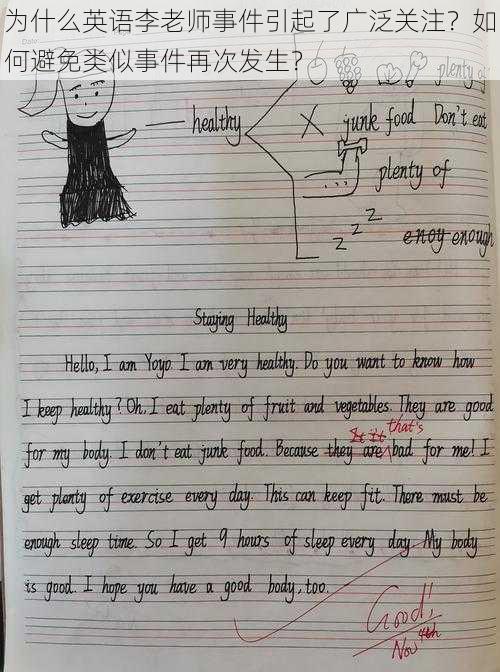 为什么英语李老师事件引起了广泛关注？如
何避免类似事件再次发生？
plenty of
healthy
X junk food Don't eat
plenty of
z z z
enoy enough
Staying Healthy
Hello, I am Yoyo. I am very healthy. Do you want to know how
I keep healthy? Oh, I eat plenty of fruit and vegetables. They are good
that's
for my body. I don't eat junk food. Because they are bad for me! I
get plenty of exercise every day. This can keep fit. There must be
enough sleep time. So I get 9 hours of sleep every day. My body
is good. I hope you have a good body, too.
Good!
Nov 4th